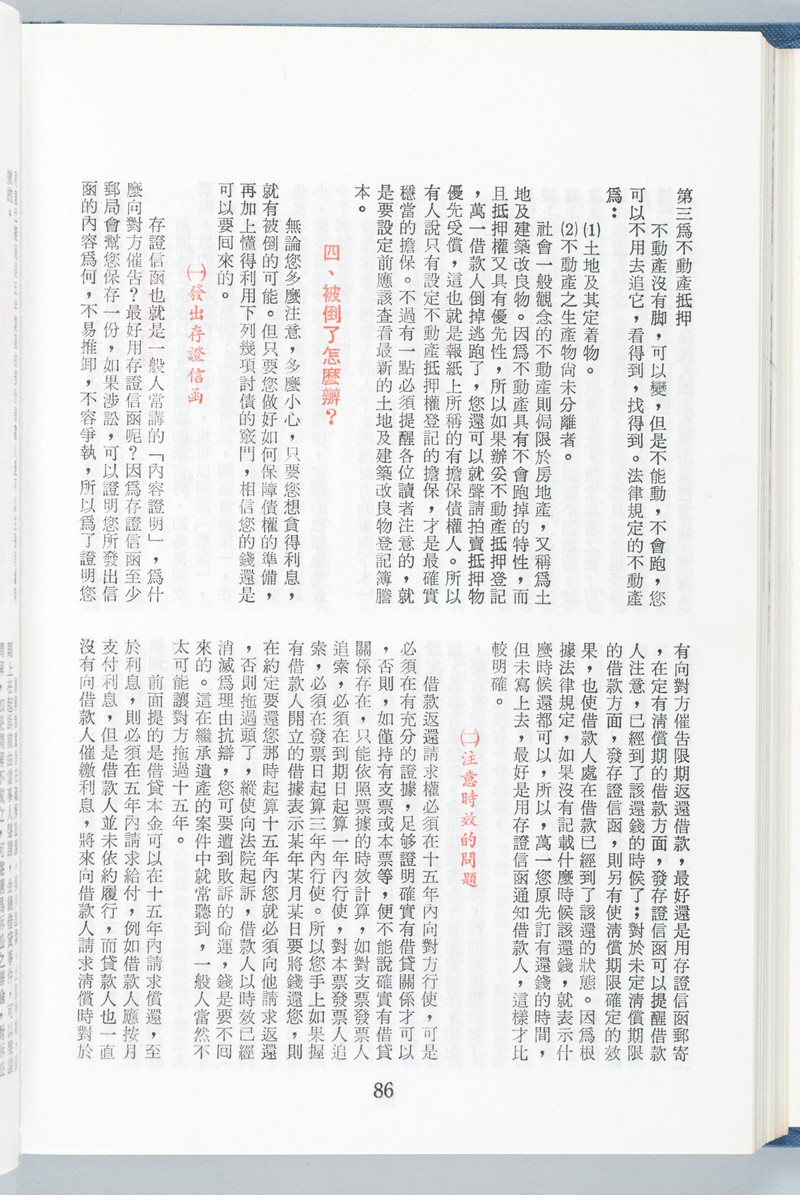 第三爲不動產抵押
不動產沒有脚，可以變，但是不能動，不會跑，您
可以不用去追它，看得到，找得到。法律規定的不動產
爲：
⑴土地及其定着物。
⑵不動產之生產物尙未分離者。
社會一般觀念的不動產則侷限於房地產，又稱爲土
地及建築改良物。因爲不動產具有不會跑掉的特性，而
且抵押權又具有優先性，所以如果辦妥不動產抵押登記
，萬一借款人倒掉逃跑了，您還可以就聲請拍賣抵押物
優先受償，這也就是報紙上所稱的有擔保債權人。所以
有人說只有設定不動產抵押權登記的擔保，才是最確實
穩當的擔保。不過有一點必須提醒各位讀者注意的，就
是要設定前應該查看最新的土地及建築改良物登記簿謄
本。
四、被倒了怎麽辦？
無論您多麼注意，多麼小心，只要您想貪得利息，
就有被倒的可能。但只要您做好如何保障債權的準備，
再加上懂得利用下列幾項討債的竅門，相信您的錢還是
可以要回來的。
㈠發出存證信函
存證信函也就是一般人常講的「內容證明」，爲什
麼向對方催告？最好用存證信函呢？因爲存證信函至少
郵局會幫您保存一份，如果涉訟，可以證明您所發出信
函的內容爲何，不易推卸，不容爭執，所以爲了證明您
有向對方催告限期返還借款，最好還是用存證信函郵寄
，在定有清償期的借款方面，發存證信函可以提醒借款
人注意，已經到了該還錢的時候了；對於未定清償期限
的借款方面，發存證信函，則另有使清償期限確定的效
果，也使借款人處在借款已經到了該還的狀態。因爲根
據法律規定，如果沒有記載什麼時候該還錢，就表示什
麼時候還都可以，所以，萬一您原先訂有還錢的時間，
但未寫上去，最好是用存證信函通知借款人，這樣才比
較明確。
㈡注意時效的問題
借款返還請求權必須在十五年內向對方行使，可是
必須在有充分的證據，足够證明確實有借貸關係才可以
，否則，如僅持有支票或本票等，便不能說確實有借貸
關係存在，只能依照票據的時效計算，如對支票發票人
追索，必須在到期日起算一年內行使，對本票發票人追
索，必須在發票日起算三年內行使。所以您手上如果握
有借款人開立的借據表示某年某月某日要將錢還您，則
在約定要還您那時起算十五年內您就必須向他請求返還
，否則拖過頭了，縱使向法院起訴，借款人以時效已經
消滅爲理由抗辯，您可要遭到敗訴的命運，錢是要不回
來的。這在繼承遺產的案件中就常聽到，一般人當然不
太可能讓對方拖過十五年。
前面提的是借貸本金可以在十五年內請求償還，至
於利息，則必須在五年內請求給付，例如借款人應按月
支付利息，但是借款人並未依約履行，而貸款人也一直
沒有向借款人催繳利息，將來向借款人請求清償時對於
86